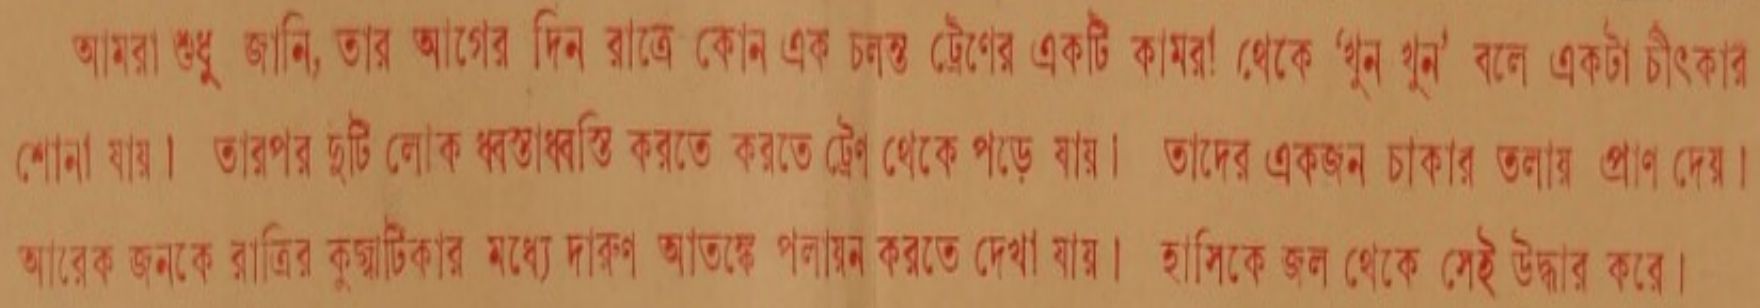 আমরা শুধু জানি, তার আগের দিন রাত্রে কোন এক চলন্ত ট্রেণের একটি কামরা থেকে ‘খুন খুন’ বলে একটা চীৎকার
শোনা যায়। তারপর দুটি লোক ধ্বস্তাধ্বস্তি করতে করতে ট্রেণ থেকে পড়ে যায়। তাদের একজন চাকার তলায় প্রাণ দেয়।
আরেক জনকে রাত্রির কুজ্ঝটিকার মধ্যে দারুণ আতঙ্কে পলায়ন করতে দেখা যায়। হাসিকে জল থেকে সেই উদ্ধার করে।